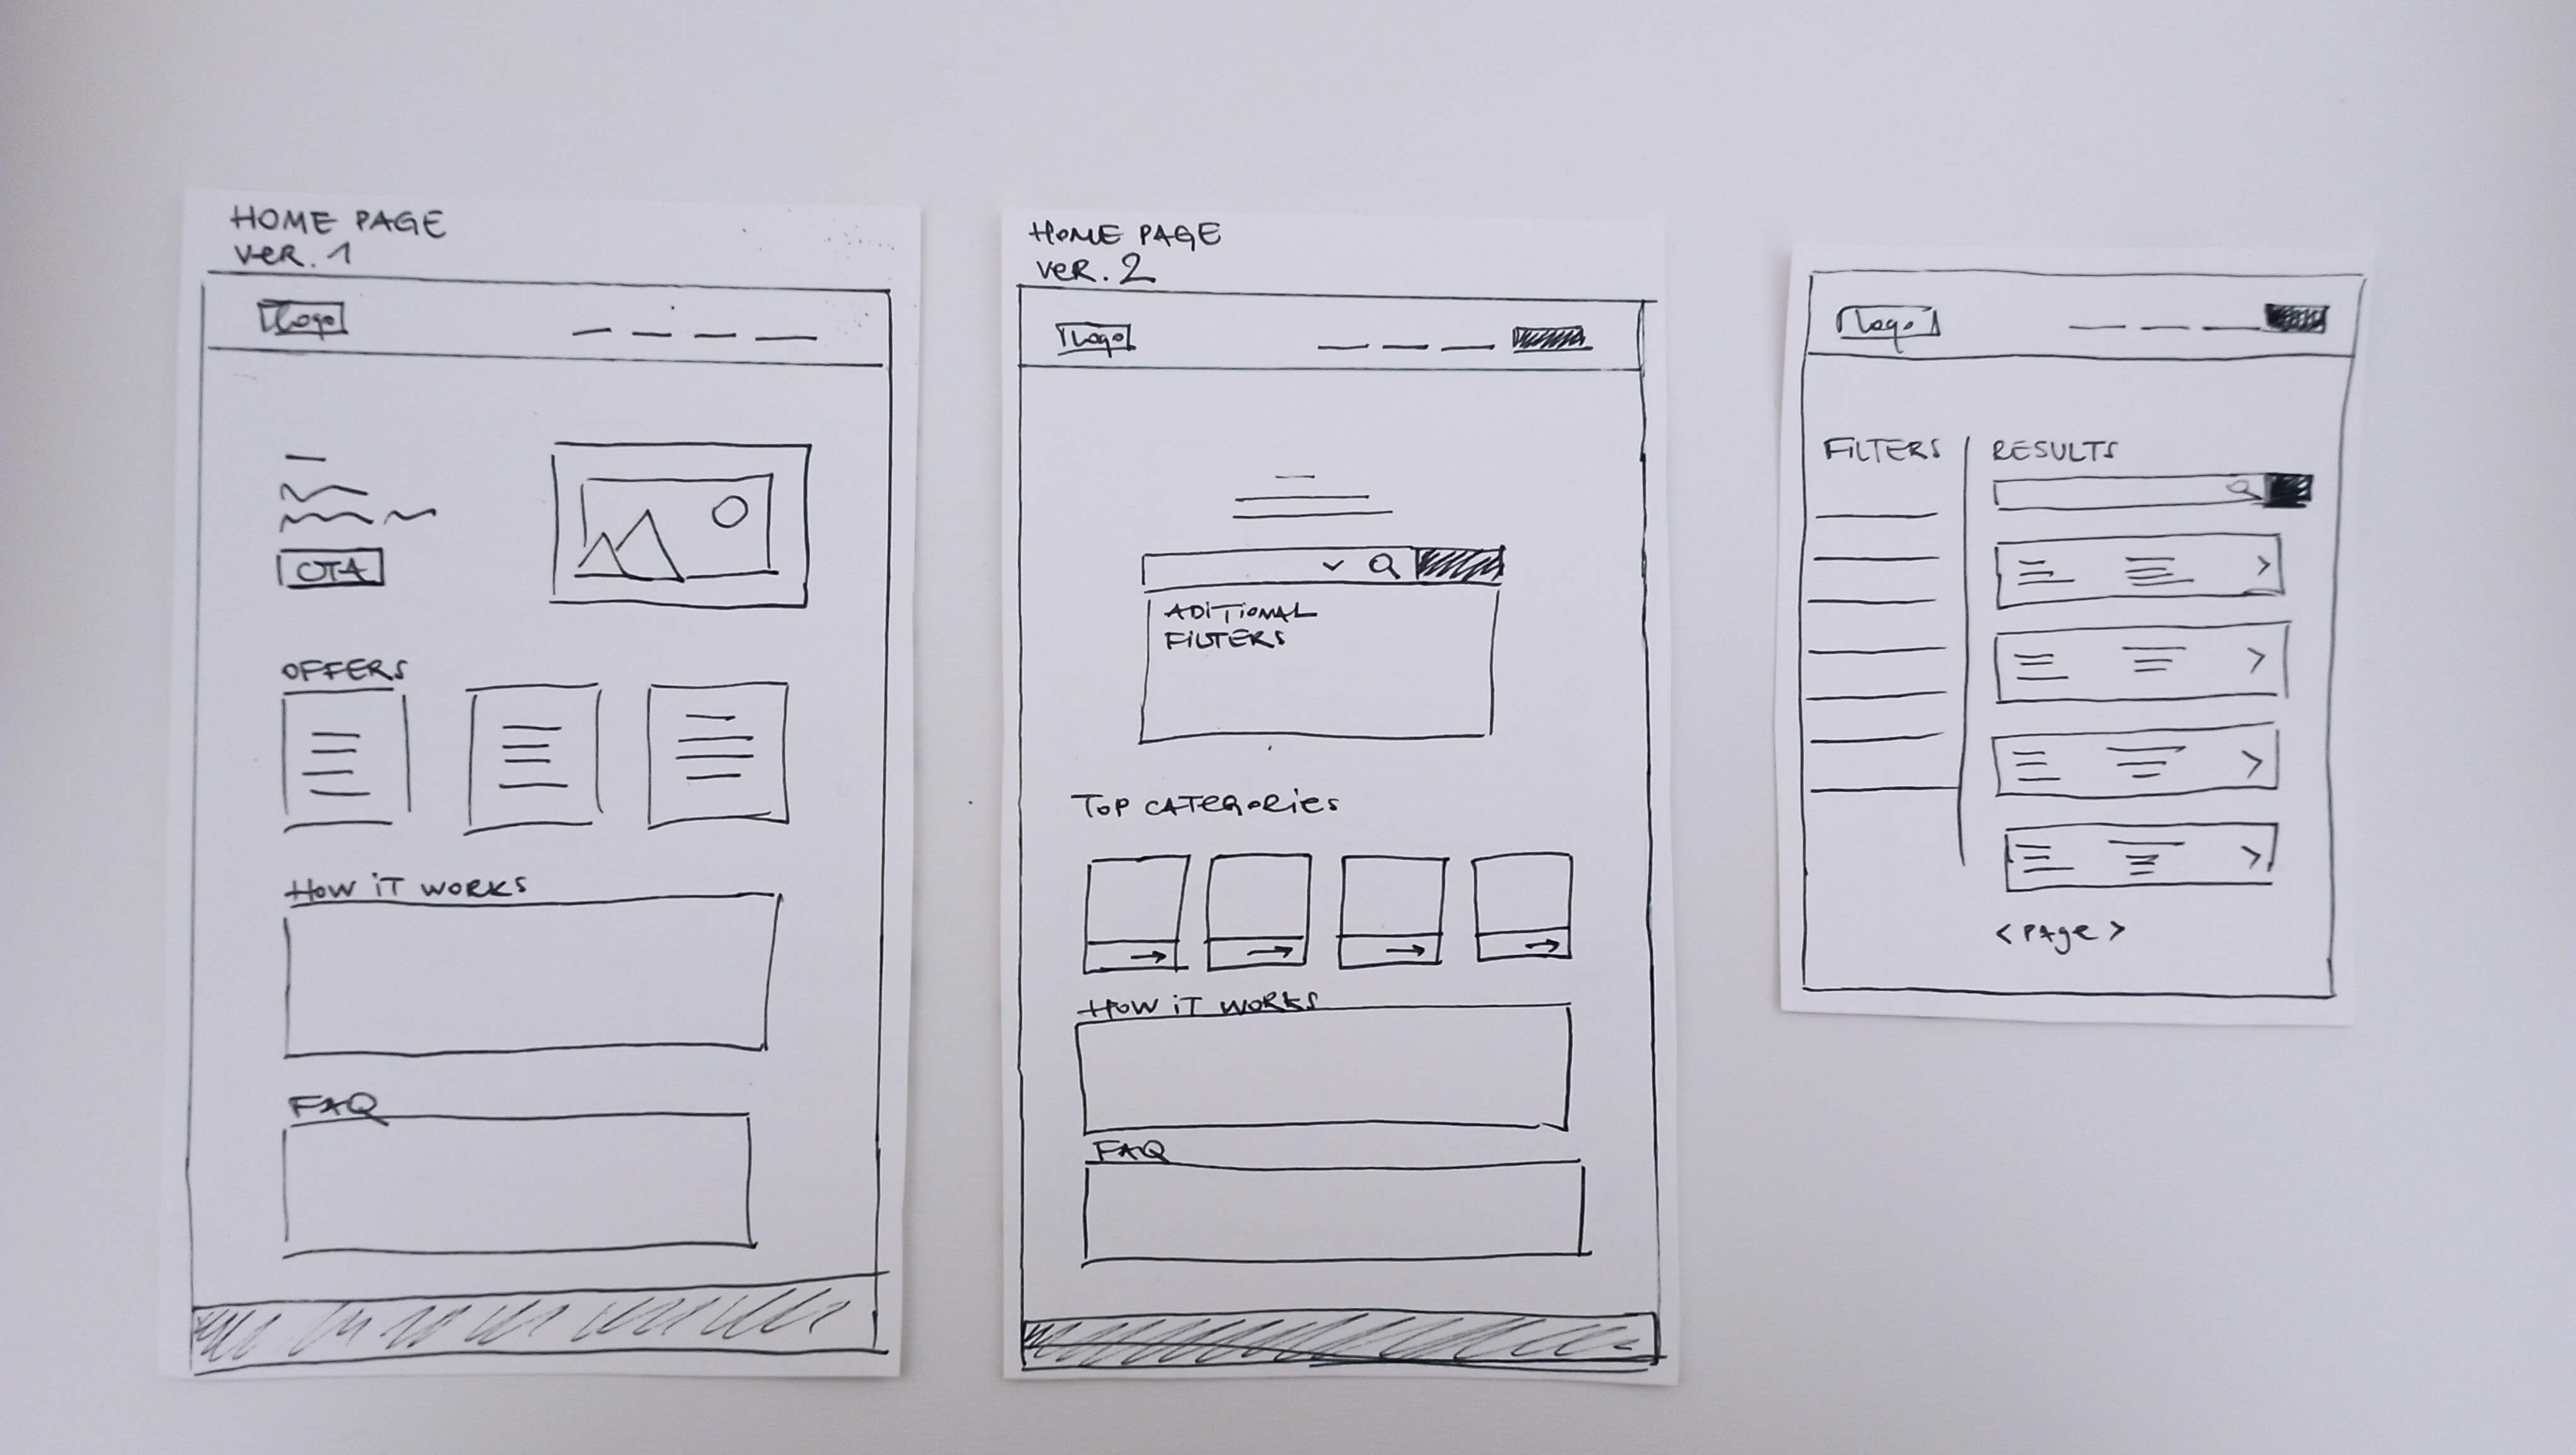 HOME PAGE
VER. 1
Logo
CTA
OFFERS
HOW IT WORKS
FAQ
HOME PAGE
VER. 2
Logo
ADITIONAL
FILTERS
TOP CATEGORIES
HOW IT WORKS
FAQ
Logo
FILTERS
RESULTS
< PAGE >